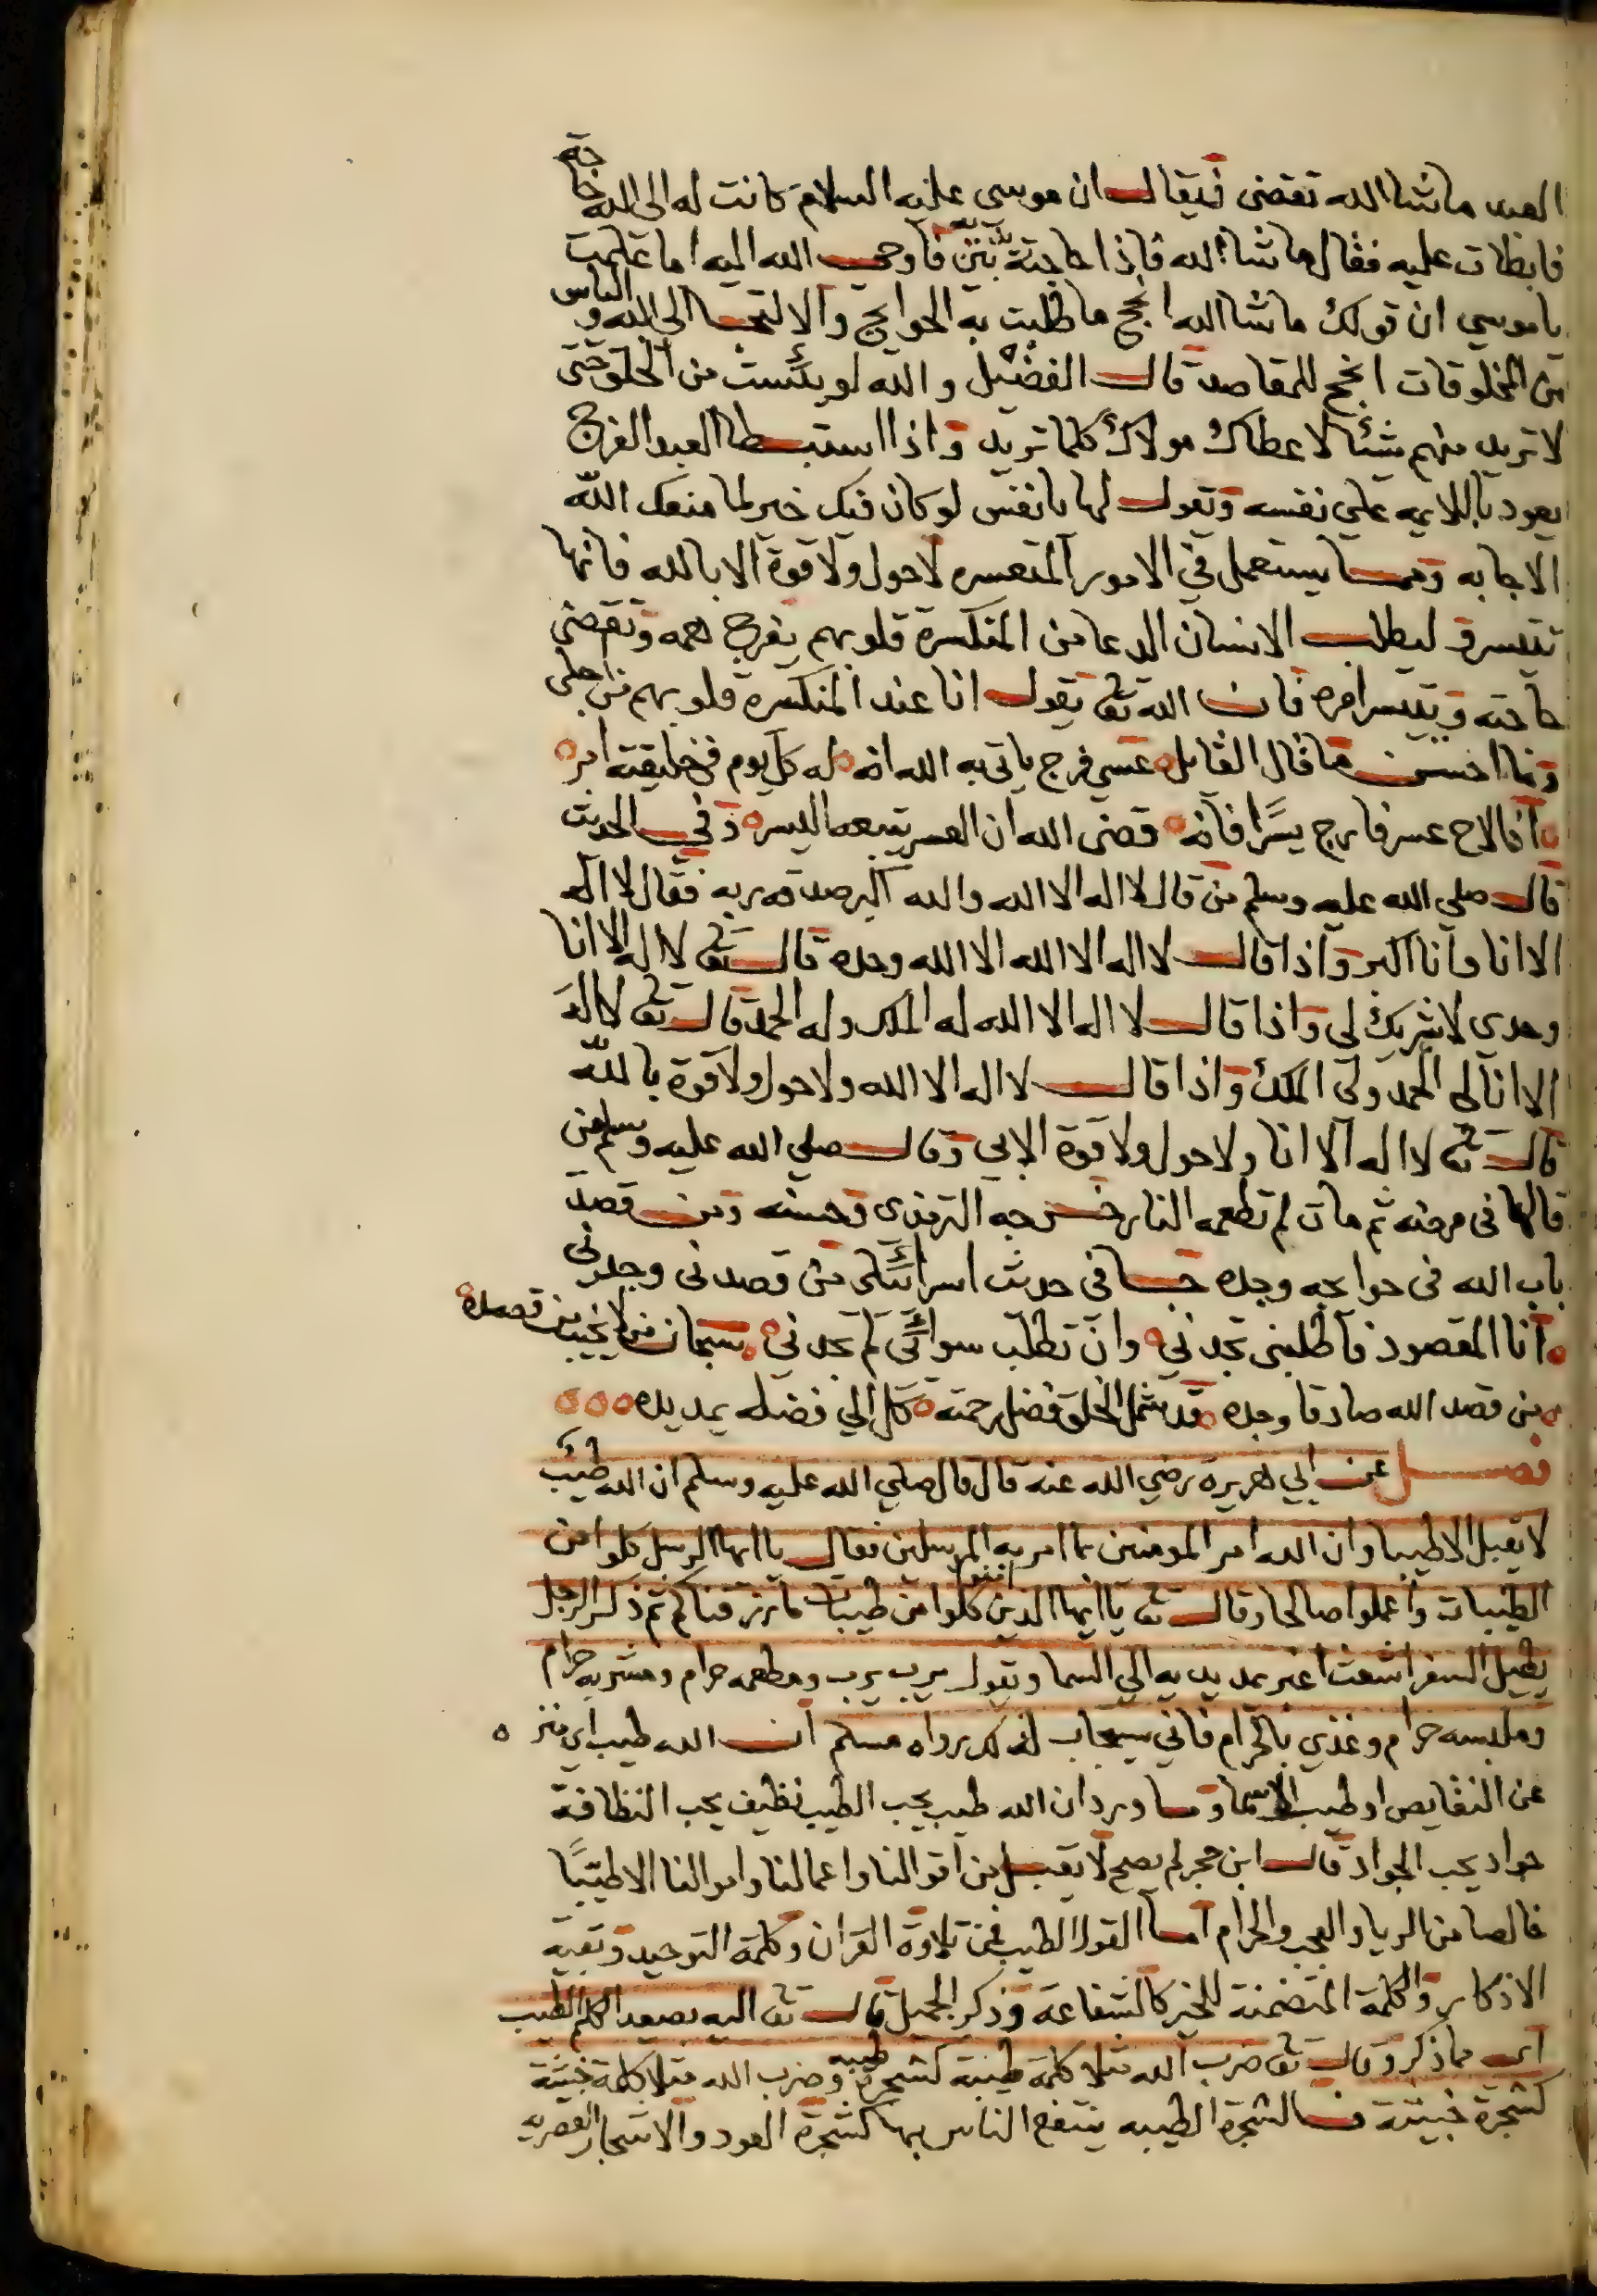 العبد ماشا الله تقضى فيقال ان موسى عليه السلام كانت له الى الله حاجة
فابطات عليه فقال ماشا الله فاذا حاجته بين يديه فاوحى الله اليه اما علمت
ياموسي ان قولك ماشا الله انجح ما طلبت به الحوايج والالتجا الى الله والياس
من المخلوقات انجح للمقاصد قال الفضيل والله لو يئست من الخلق حتى
لا تريد منهم شيئا لاعطاك مولاك كلما تريد واذا استبطا العبد الفرج
يعود باللايمه علي نفسه ويقول لها يانفس لو كان فيك خير لما منعك الله
الاجابه ومما يستعمل في الامور المتعسره لاحول ولا قوة الا بالله فانها
تتيسر وليطلب الانسان الدعا من المنكسرة قلوبهم يفرج همه وتقضى
حاجته ويتيسر امره فان الله تعا يقول انا عند المنكسرة قلوبهم من اجلى
وما احسن ما قال القايل عسي فرج ياتى به الله انه له كل يوم في خليقته امر
اذا لاح عسر فارج يسرا فانه قضى الله ان العسر يتبعه اليسر وفي الحديث
قال صلي الله عليه وسلم من قال لااله الا الله والله اكبر صدقه ربه فقال لا اله
الا انا وانا اكبر واذا قال لااله الا الله الا الله وحده قال تعا لا اله الا انا
وحدى لا شريك لى واذا قال لا اله الا الله له الملك وله الحمد قال تعا لا اله
الا انا لى الحمد ولى الملك واذا قال لا اله الا الله ولاحول ولا قوة بالله
قال تعا لا اله الا انا ولا حول ولا قوة الا بي وقال صلي الله عليه وسلم من
قالها فى مرضه ثم مات لم تطعمه النار خرجه الترمذى وحسنه ومن قصد
باب الله فى حوايجه وجده جا فى حديث اسرائيلى من قصدنى وجدني
انا المقصود فاطلبنى تجدني وان تطلب سوائي لم تجدني سبحان من لا يخيب من قصده
من قصد الله صادقا وجده قد شمل الخلق فضل رحمته كل الي فضله يمد يده
فصل عن ابي هريرة رضي الله عنه قال قال صلي الله عليه وسلم ان الله طيب
لا يقبل الا طيبا وان الله امر المومنين بما امر به المرسلين فقال يا ايها الرسل كلوا من
الطيبات واعملوا صالحا وقال تعا يا ايها الذين امنوا كلوا من طيبات ما رزقناكم ثم ذكر الرجل
يطيل السفر اشعث اغبر يمد يديه الي السما ويقول يرب يرب ومطعمه حرام ومشربه حرام
وملبسه حرام وغذي بالحرام فاني يستجاب لذلك رواه مسلم ان الله طيب اى منزه
عن النقايص او طيب الاسما وما ورد ان الله طيب يحب الطيب نظيف يحب النظافة
جواد يحب الجواد قال ابن حجر لم يصح لا يقبل من اقوالنا واعمالنا واموالنا الا طيبا
خالصا من الريا والعجب والحرام اما القول الطيب فمن تلاوة القران وكلمة التوحيد وبقية
الاذكار والكلمة المتضمنة للخير كالشفاعة وذكر الجميل قال تعا اليه يصعد الكلم الطيب
اى مما ذكر وقال تعا ضرب الله مثلا كلمة طيبة كشجرة طيبه وضرب الله مثلا كلمة خبيثة
كشجرة خبيثة فالشجرة الطيبه ينتفع الناس بها كشجرة العود والاشجار